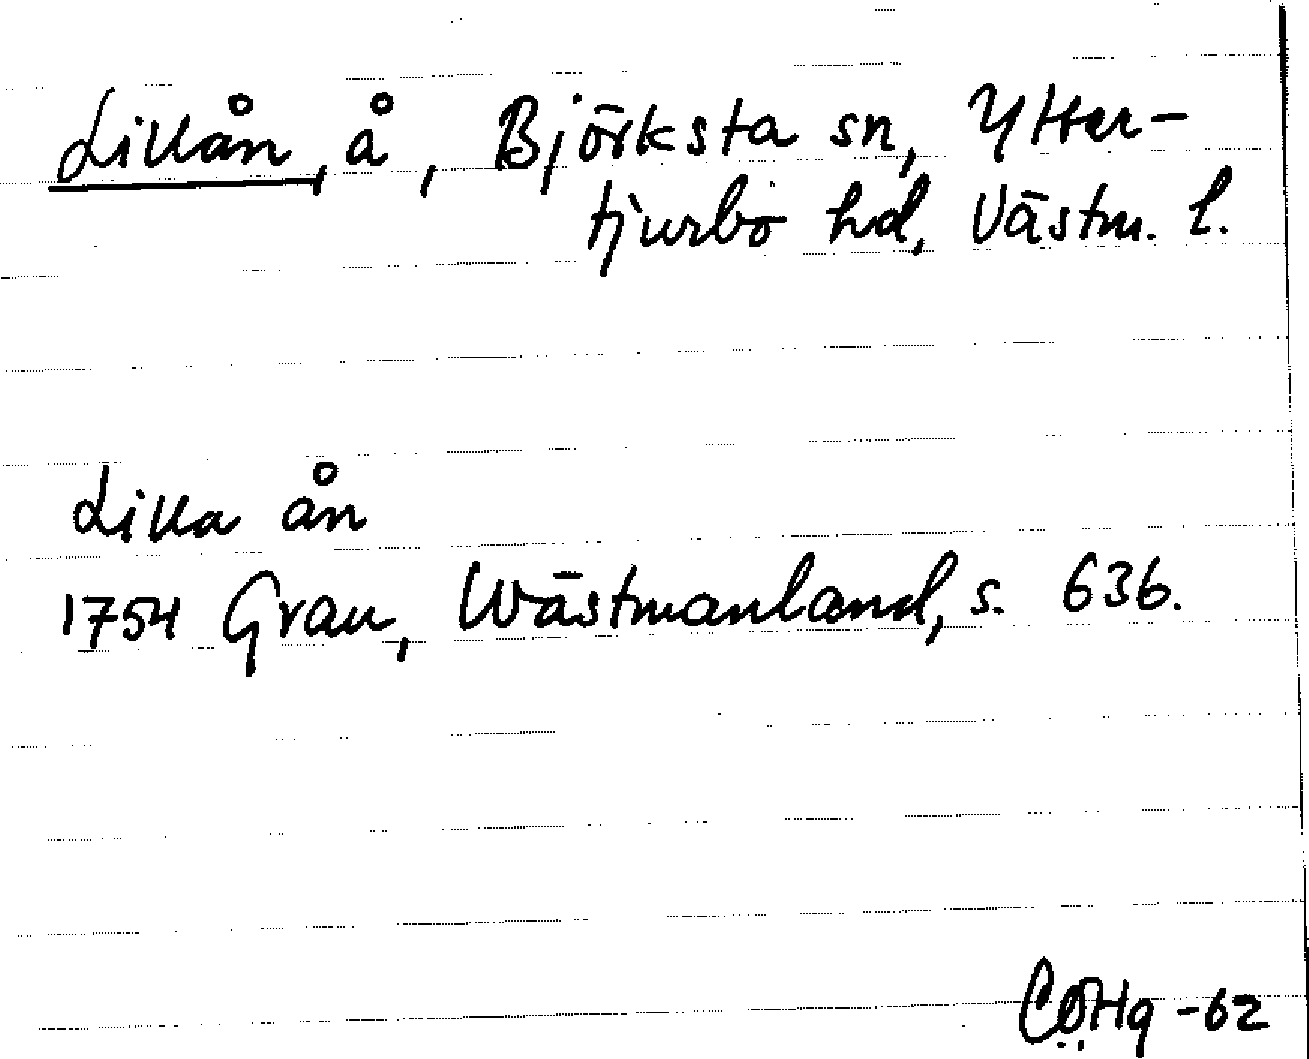 Lillån, å, Björksta sn, Ytter-
tjurbo hd, Västm. l.
Lilla ån
1754 Grau, Wästmanland, s. 636.
CÖHg -62